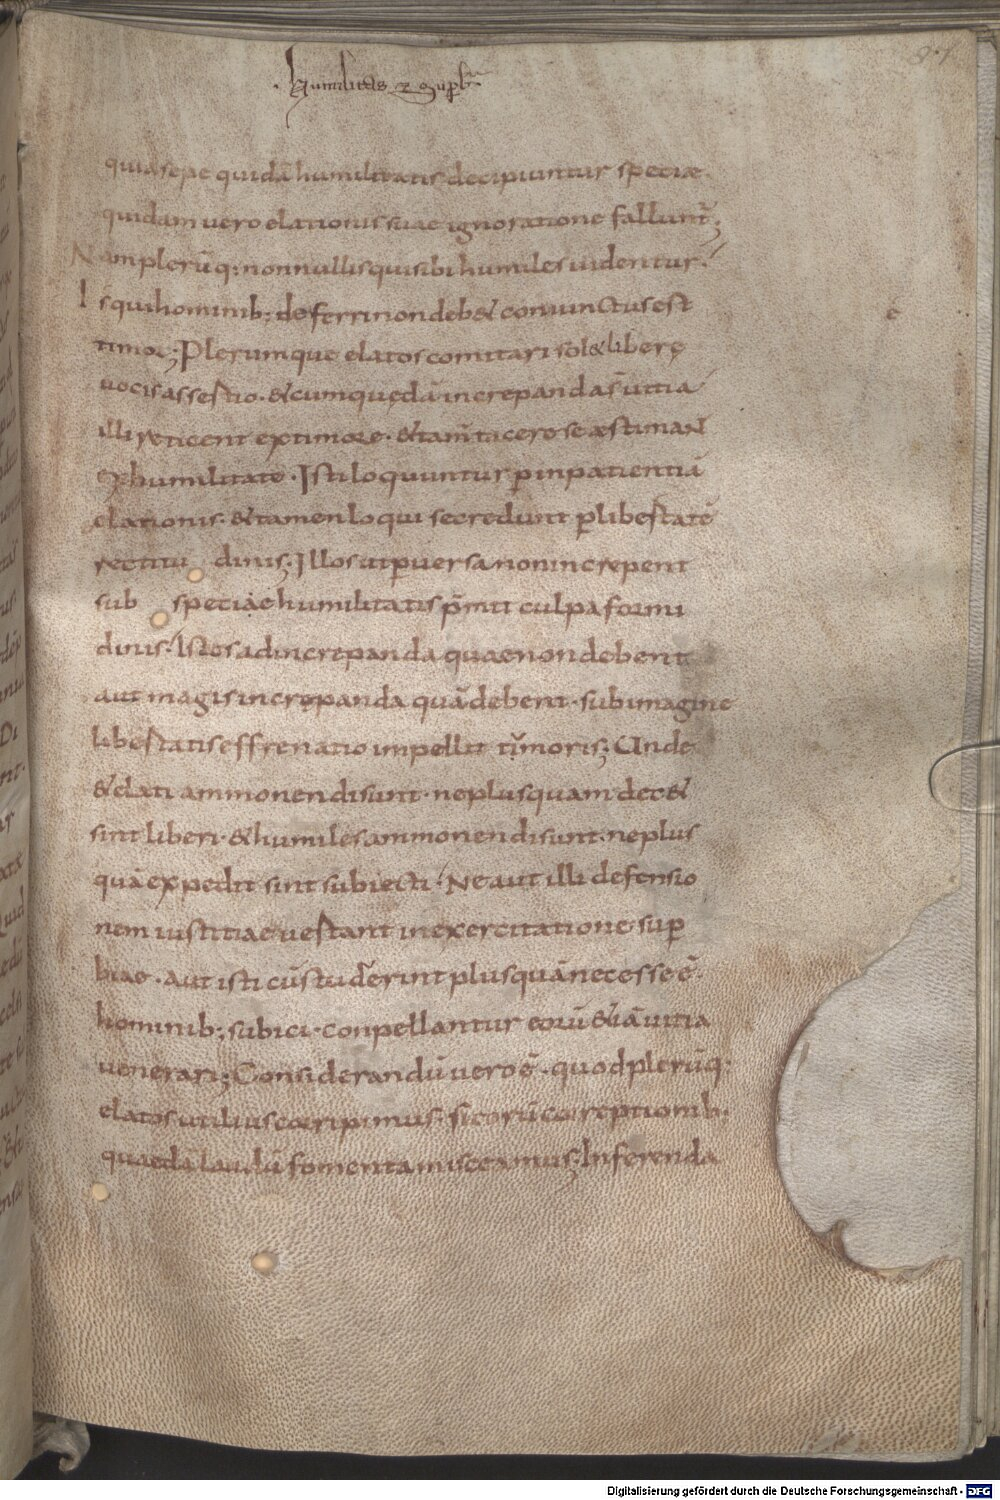 humilitatis et sup̄b
quia sepe quidā humilitatis decipiuntur speciæ.
quidam uero elationis suae ignoratione fallunt̄;
Nam plerūq; nonnullis qui sibi humiles uidentur.
Is qui hominib; deferri non deb& coniunctus est
timor; Plerumque elatos comitari sol& liberę
uocis assertio. & cum quędā increpanda s̄ uitia
illi reticent ex timore. & tam̄ tacere se æstimant
ex humilitate. Isti loquuntur p inpatientiā
elationis. & tamen loqui se credunt p libertatē
rectitudinis; Illos ut puersa non increpent
sub speciae humilitatis p̄mit culpa formi
dinis. Istos ad increpanda quae non debent
aut magis increpanda quā debent. sub imagine
libertatis effrenatio impellit tumoris; Unde
& elati ammonendi sunt. ne plus quam dec&
sint liberi. & humiles ammonendi sunt. ne plus
quā expedit sint subiecti. Ne aut illi defensio
nem iustitiae uertant in exercitatione sup
biae. aut isti cū studuerint plus quā necesse ē.
hominib; subici. conpellantur eorū &iā uitia
uenerari; Considerandū uero ē. quod plerūq;
elatos utilius corripimus. si eorū correptionib.
quaedā laudū fomenta misceamus; Inferenda
Digitalisierung gefördert durch die Deutsche Forschungsgemeinschaft - DFG